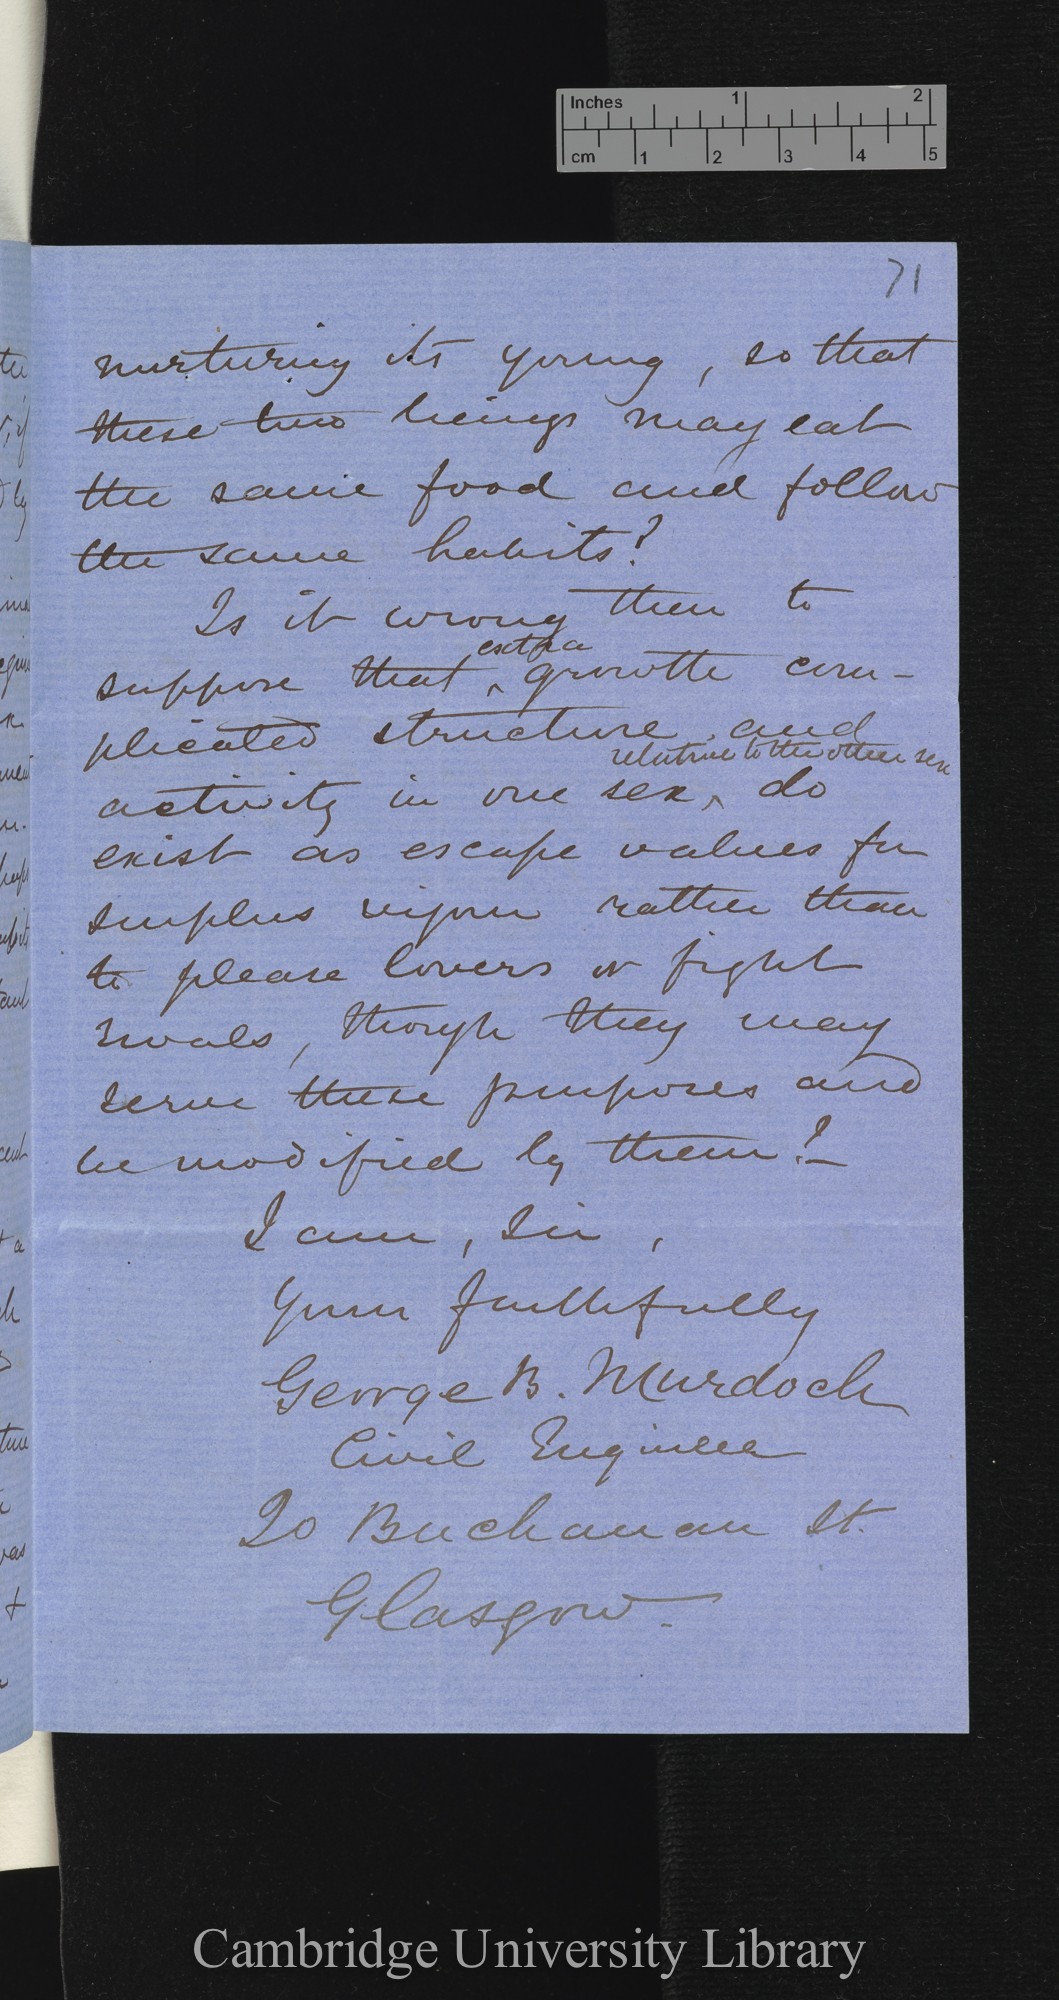 Inches 1 2
cm 1 2 3 4 5
71
nurturing its young, so that
these two beings may eat
the same food and follow
the same habits?
Is it wrong then to
extra
suppose that ^ growth com-
plicated structure and
relative to the other sex
activity in one sex, ^ do
exist as escape valves for
surplus vigour rather than
to please lovers or fight
rivals, though they may
serve these purposes and
be modified by them?—
I am, Sir,
Your faithfully
George B. Murdoch
Civil Engineer
20 Buchanan St.
Glasgow.
Cambridge University Library